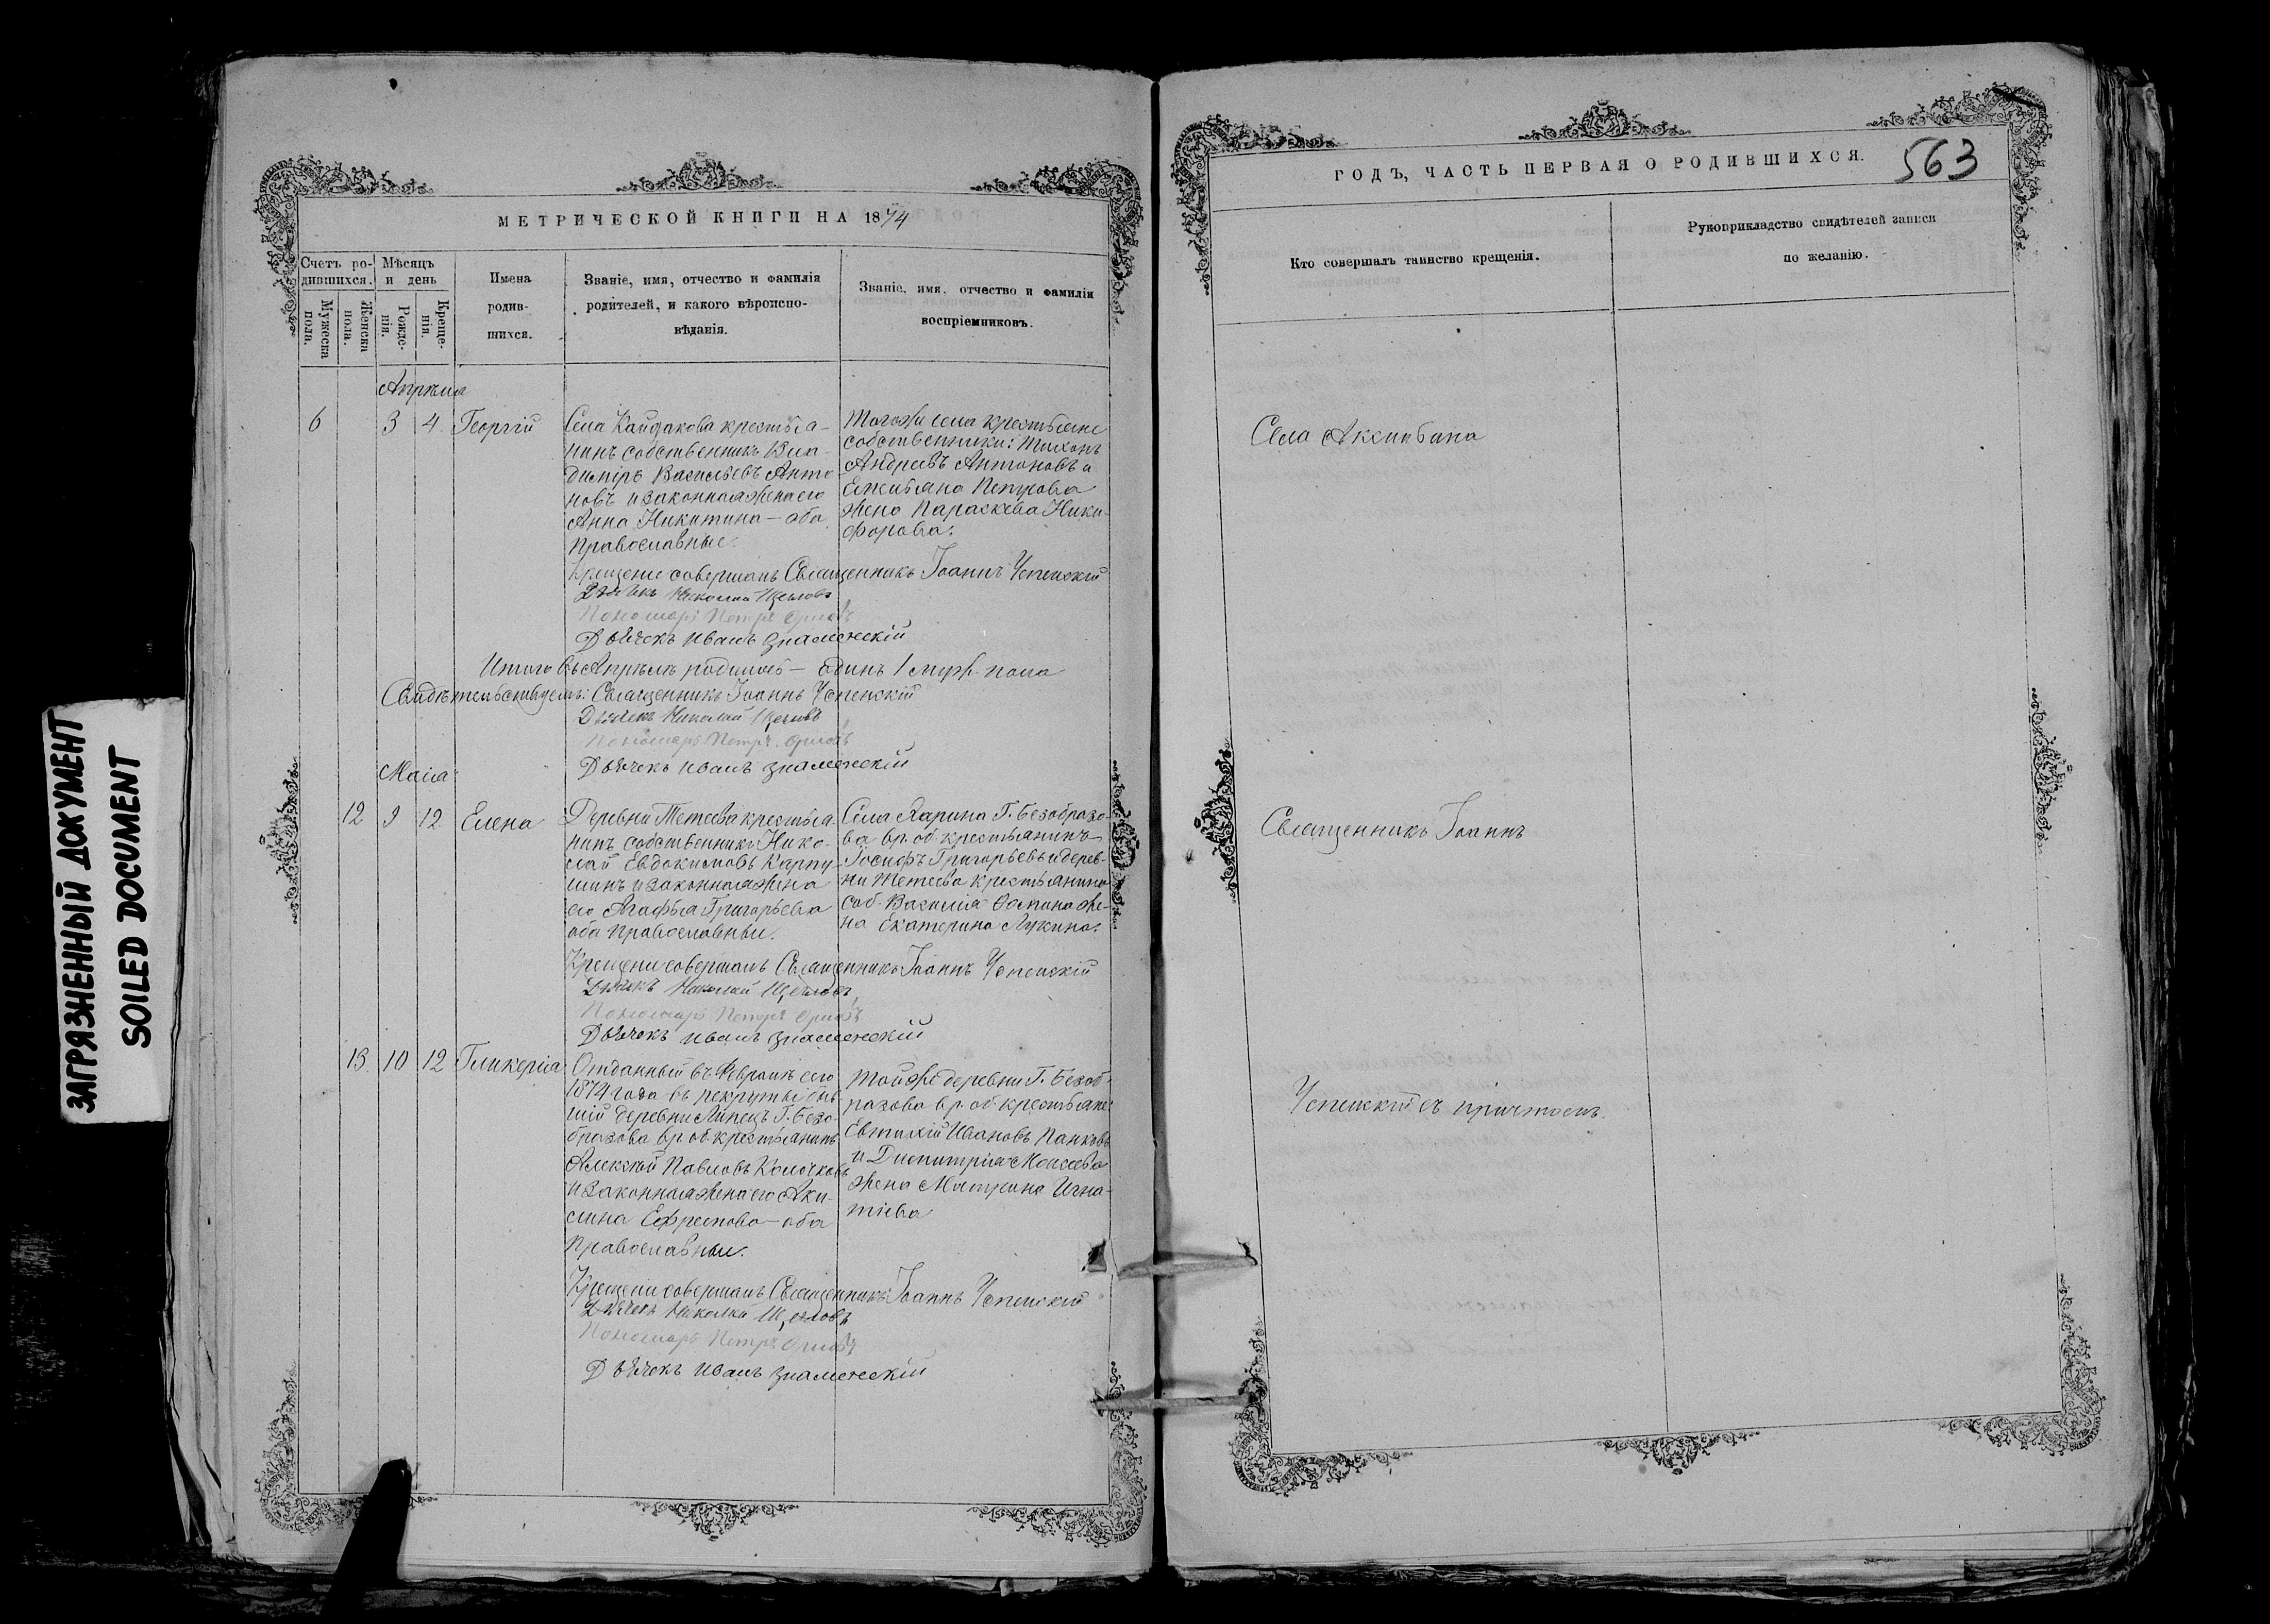 МЕТРИЧЕСКОЙ КНИГИ НА 1874
Счетъ ро-
дившихся.
Мѣсяцъ
и день
Мужеска
пола.
Женска
пола.
Рожде-
нія.
Креще-
нія.
Имена
родив-
шихся.
Званіе, имя, отчество и фамилія
родителей, и какого вѣроиспо-
вѣданія.
Званіе, имя, отчество и фамилія
воспріемниковъ.
Апрѣля
6 3 4 Георгій
Села Кайдакова крестья-
нинъ собственникъ Вла-
диміръ Васильевъ Анто
новъ и законная жена его
Анна Никитина – оба
Православные.
Тогоже села крестьяне
собственники: Тихонъ
Андреевъ Антоновъ и
Емельяна Петрова
жена Параскева Ники-
форова.
Крещеніе совершалъ Священникъ Іоаннъ Успенскій
Дьячекъ Николай Щегловъ
Пономарь Петръ Орловъ
Дьячекъ Иванъ Знаменскій
Итого въ Апрѣлѣ родилось – Одинъ 1 муж. пола
Свидѣтельствуемъ: Священникъ Іоаннъ Успенскій
Дьячекъ Николай Щегловъ
Пономарь Петръ Орловъ
Дьячекъ Иванъ Знаменскій
Маіа
12 9 12 Елена
Деревни Тетеева крестья
нинъ собственникъ Нико-
лай Евдокимовъ Карпу-
шинъ и законная жена
его Агафья Григорьева
оба Православныи.
Села Ларина Г. Безобразо-
ва вр. об. крестьянинъ
Іосифъ Григорьевъ и дерев-
ни Тетеева крестьянина
соб. Василія Фомина же-
на Екатерина Лукина.
Крещеніе совершалъ Священникъ Іоаннъ Успенскій
Дьячекъ Николай Щегловъ
Пономарь Петръ Орловъ
Дьячекъ Иванъ Знаменскій
13. 10 12 Гликерія
Отданный въ Февралѣ сего
1874 года въ рекруты быв-
шій деревни Липецъ Г. Безо-
бразова вр. об. крестьянинъ
Алексѣй Павловъ Колочковъ
и законная жена его Аку-
лина Ефремова – оба
Православныи.
Тойже деревни Г. Безоб-
разова вр. об. крестьяне:
Евтихій Ивановъ Панковъ
и Димитрія Моисеева
жена Матрона Игна-
тіева
Крещеніе совершалъ Священникъ Іоаннъ Успенскій
Дьячекъ Николай Щегловъ
Пономарь Петръ Орловъ
Дьячекъ Иванъ Знаменскій
ГОДЪ, ЧАСТЬ ПЕРВАЯ О РОДИВШИХСЯ.
563
Кто совершалъ таинство крещенія.
Рукоприкладство свидѣтелей записи
по желанію.
Села Аксиньина
Священникъ Іоаннъ
Успенскій съ причтомъ.
ЗАГРЯЗНЕННЫЙ ДОКУМЕНТ
SOILED DOCUMENT